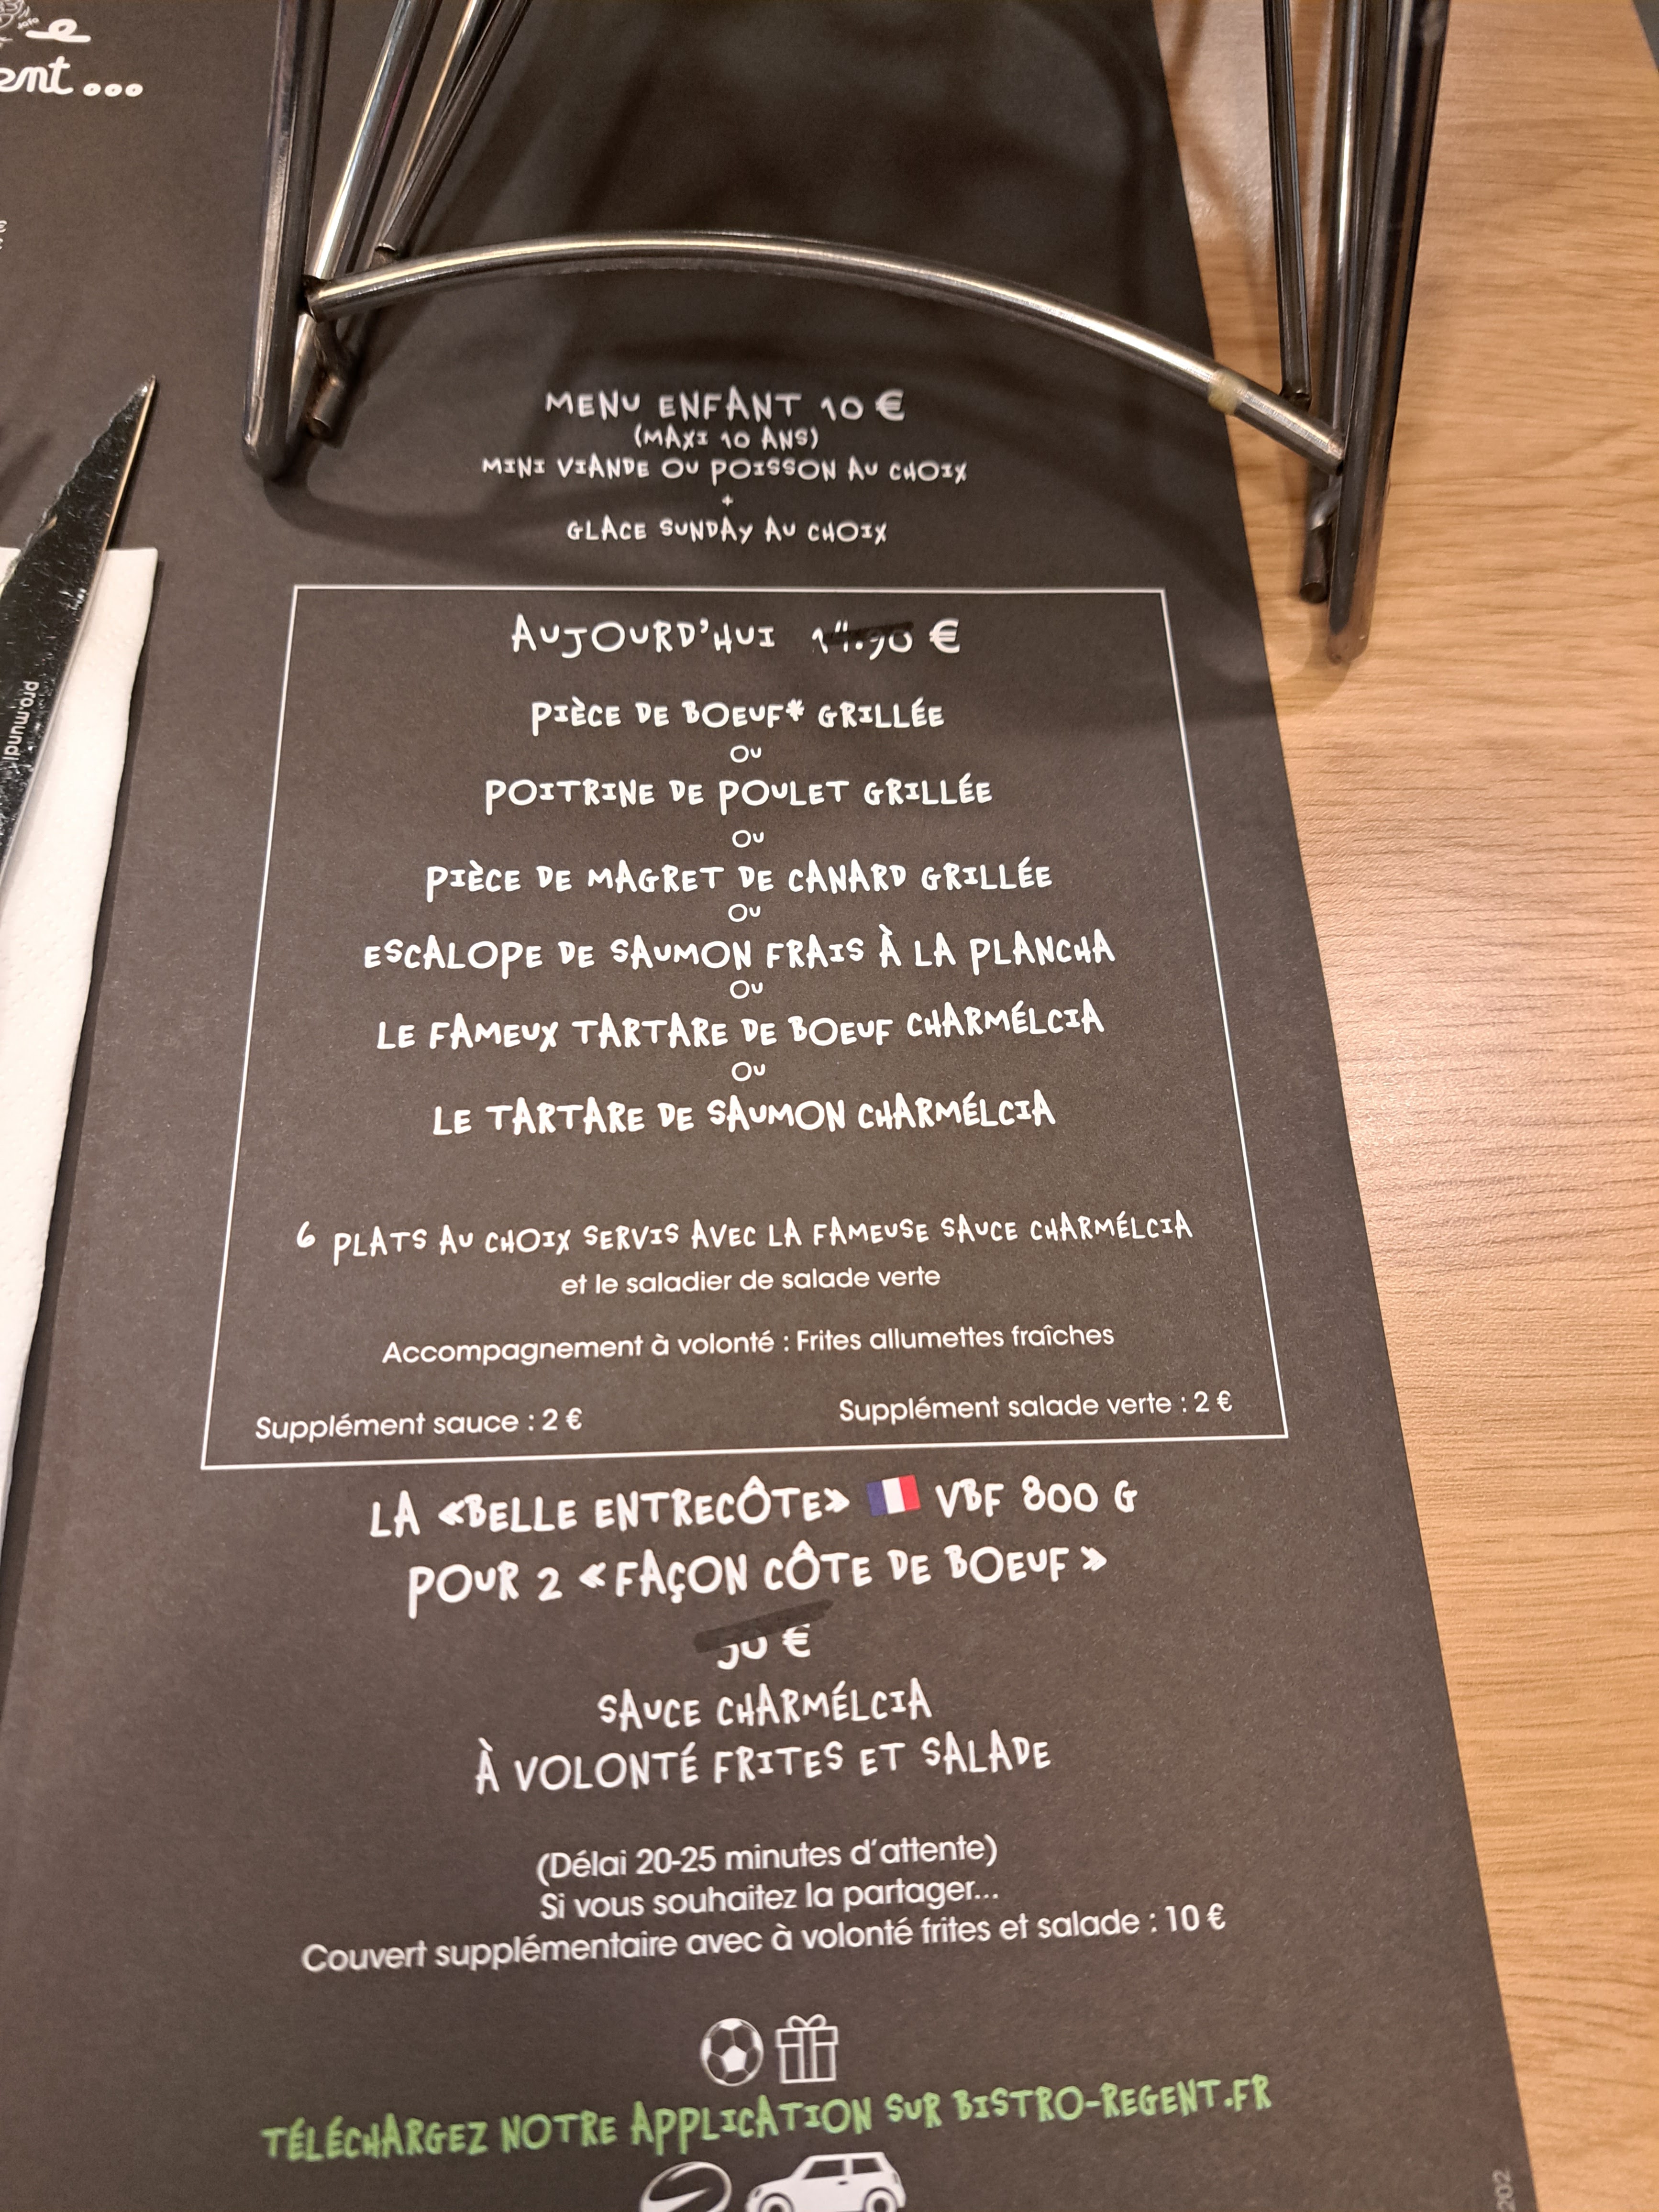 ent...
MENU ENFANT 10 €
(MAXI 10 ANS)
MINI VIANDE OU POISSON AU CHOIX
+
GLACE SUNDAY AU CHOIX
AUJOURD'HUI 14.90 €
PIÈCE DE BOEUF* GRILLÉE
OU
POITRINE DE POULET GRILLÉE
OU
PIÈCE DE MAGRET DE CANARD GRILLÉE
OU
ESCALOPE DE SAUMON FRAIS À LA PLANCHA
OU
LE FAMEUX TARTARE DE BOEUF CHARMÉLCIA
OU
LE TARTARE DE SAUMON CHARMÉLCIA
6 PLATS AU CHOIX SERVIS AVEC LA FAMEUSE SAUCE CHARMÉLCIA
et le saladier de salade verte
Accompagnement à volonté : Frites allumettes fraîches
Supplément sauce : 2 €
Supplément salade verte : 2 €
LA «BELLE ENTRECÔTE» VBF 800 G
POUR 2 « FAÇON CÔTE DE BOEUF »
€
SAUCE CHARMÉLCIA
À VOLONTÉ FRITES ET SALADE
(Délai 20-25 minutes d'attente)
Si vous souhaitez la partager...
Couvert supplémentaire avec à volonté frites et salade : 10 €
TÉLÉCHARGEZ NOTRE APPLICATION SUR BISTRO-REGENT.FR
pro.mundi